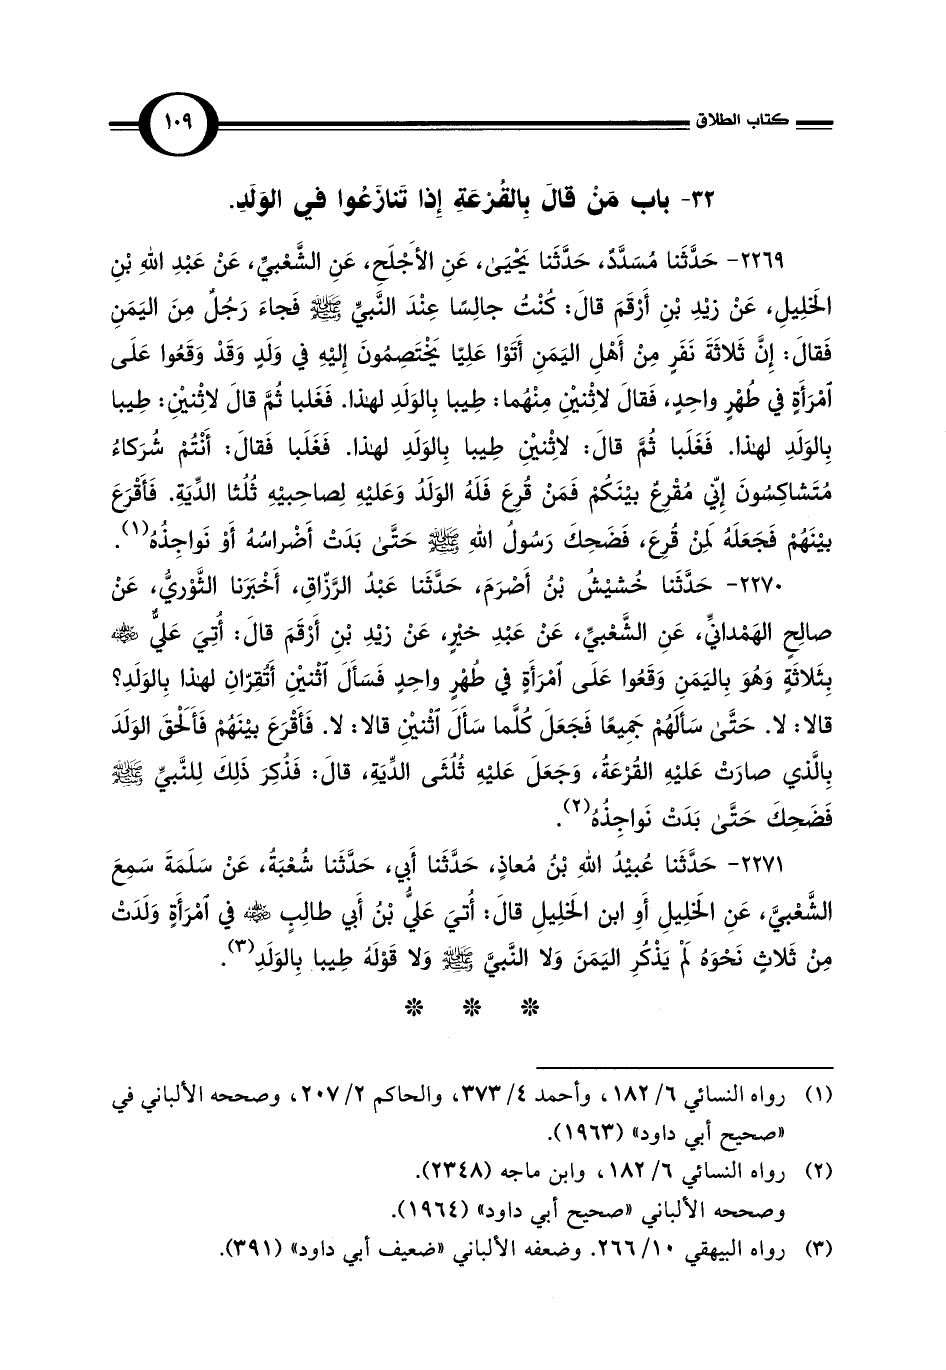 كتاب الطلاق
١٠٩
٣٢- باب مَنْ قالَ بِالقُرْعَةِ إِذا تَنازَعُوا في الوَلَدِ.
٢٢٦٩- حَدَّثَنا مُسَدَّدٌ، حَدَّثَنا يَحْيَىٰ، عَنِ الأَجْلَحِ، عَنِ الشَّعْبيِّ، عَنْ عَبْدِ اللهِ بْنِ
الخَلِيلِ، عَنْ زَيْدِ بْنِ أَرْقَمَ قالَ: كُنْتُ جالِسًا عِنْدَ النَّبيِّ ﷺ فَجاءَ رَجُلٌ مِنَ اليَمَنِ
فَقالَ: إِنَّ ثَلاثَةَ نَفَرٍ مِنْ أَهْلِ اليَمَنِ أَتَوْا عَلِيًا يَخْتَصِمُونَ إِلَيْهِ في وَلَدٍ وَقَدْ وَقَعُوا عَلَى
ٱمْرَأَةٍ في طُهْرٍ واحِدٍ، فَقالَ لاثْنَيْنِ مِنْهُما: طِيبا بِالوَلَدِ لهذا. فَغَلَبا ثُمَّ قالَ لاثْنَيْنِ: طِيبا
بِالوَلَدِ لهذا. فَغَلَبا ثُمَّ قالَ: لاثْنَيْنِ طِيبا بِالوَلَدِ لهذا. فَغَلَبا فَقالَ: أَنْتُمْ شُرَكاءُ
مُتَشاكِسُونَ إِنّي مُقْرِعٌ بَيْنَكُمْ فَمَنْ قُرِعَ فَلَهُ الوَلَدُ وَعَلَيْهِ لِصاحِبَيْهِ ثُلُثا الدِّيَةِ. فَأَقْرَعَ
بَيْنَهُمْ فَجَعَلَهُ لِمَنْ قُرِعَ، فَضَحِكَ رَسُولُ اللهِ ﷺ حَتَّىٰ بَدَتْ أَضْراسُهُ أَوْ نَواجِذُهُ(١).
٢٢٧٠- حَدَّثَنا خُشَيْشُ بْنُ أَصْرَمَ، حَدَّثَنا عَبْدُ الرَّزّاقِ، أَخْبَرَنا الثَّوْريُّ، عَنْ
صالِحٍ الهَمْدانيِّ، عَنِ الشَّعْبيِّ، عَنْ عَبْدِ خَيْرٍ، عَنْ زَيْدِ بْنِ أَرْقَمَ قالَ: أُتِيَ عَليٌّ ﷺ
بِثَلاثَةٍ وَهُوَ بِاليَمَنِ وَقَعُوا عَلَى ٱمْرَأَةٍ في طُهْرٍ واحِدٍ فَسَأَلَ ٱثْنَيْنِ أَتُقِرّانِ لهذا بِالوَلَدِ؟
قالا: لا. حَتَّىٰ سَأَلَهُمْ جَمِيعًا فَجَعَلَ كُلَّما سَأَلَ ٱثْنَيْنِ قالا: لا. فَأَقْرَعَ بَيْنَهُمْ فَأَلْحَقَ الوَلَدَ
بِالَّذي صارَتْ عَلَيْهِ القُرْعَةُ، وَجَعَلَ عَلَيْهِ ثُلُثَى الدِّيَةِ، قالَ: فَذُكِرَ ذَلِكَ لِلنَّبيِّ ﷺ
فَضَحِكَ حَتَّىٰ بَدَتْ نَواجِذُهُ(٢).
٢٢٧١- حَدَّثَنا عُبَيْدُ اللهِ بْنُ مُعاذٍ، حَدَّثَنا أَبي، حَدَّثَنا شُعْبَةُ، عَنْ سَلَمَةَ سَمِعَ
الشَّعْبيَّ، عَنِ الخَلِيلِ أَوِ ابن الخَلِيلِ قالَ: أُتيَ عَليُّ بْنُ أَبي طالِبٍ ﷺ في ٱمْرَأَةٍ وَلَدَتْ
مِنْ ثَلاثٍ نَحْوَهُ لَمْ يَذْكُرِ اليَمَنَ وَلا النَّبيَّ ﷺ وَلا قَوْلَهُ طِيبا بِالوَلَدِ(٣).
(١) رواه النسائي ٦/ ١٨٢، وأحمد ٤/ ٣٧٣، والحاكم ٢/ ٢٠٧، وصححه الألباني في
«صحيح أبي داود» (١٩٦٣).
(٢) رواه النسائي ٦/ ١٨٢، وابن ماجه (٢٣٤٨).
وصححه الألباني «صحيح أبي داود» (١٩٦٤).
(٣) رواه البيهقي ١٠/ ٢٦٦. وضعفه الألباني «ضعيف أبي داود» (٣٩١).